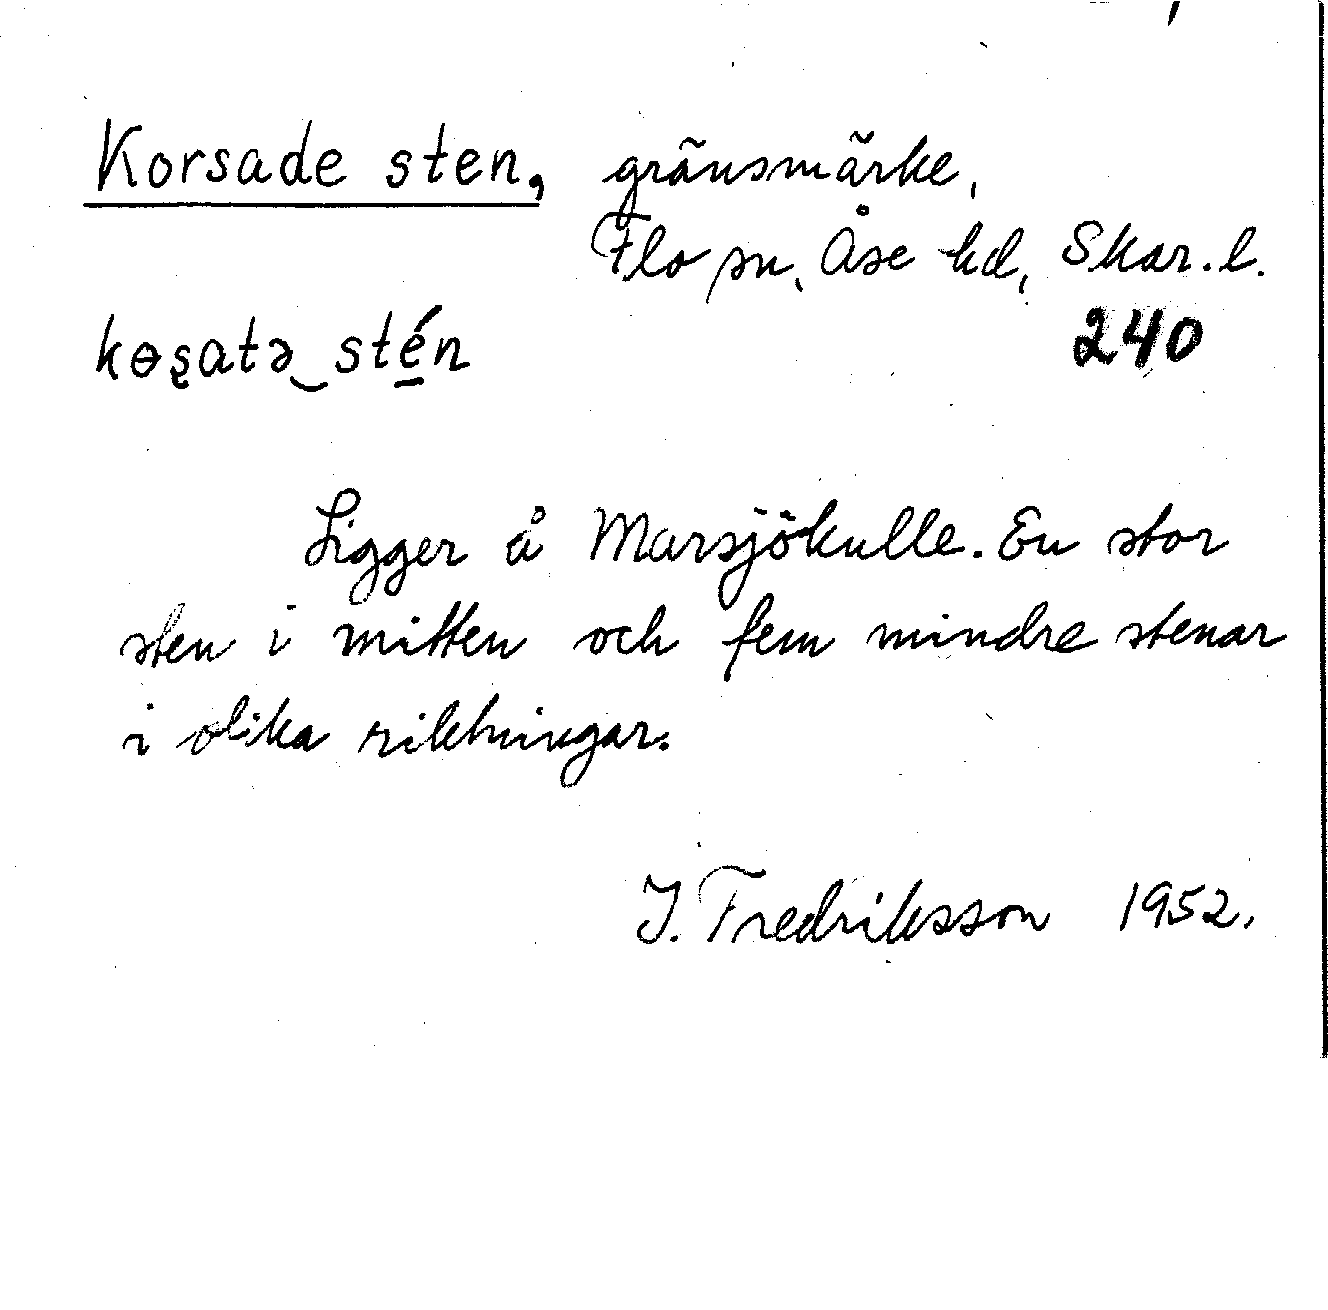 Korsade sten, gränsmärke,
Flo sn, Åse hd, Skar. l.
kɵʂatə‿sté̱n 240
Ligger å Marsjökulle. En stor
sten i mitten och fem mindre stenar
i olika riktningar.
J. Fredriksson 1952.